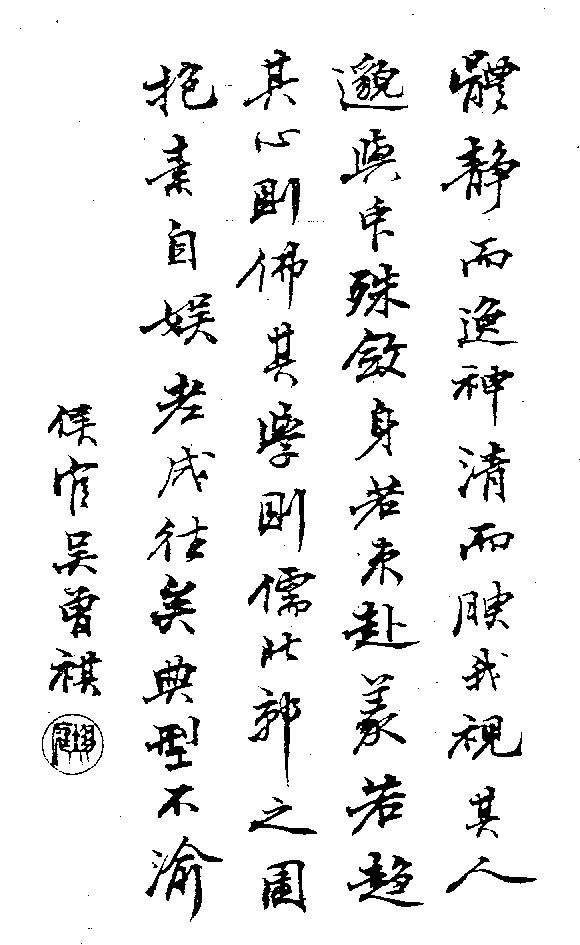 體靜而逸神清而腴我視其人
邈與殊斂身若束赴義若趨
其心則佛其學則儒北郭之圃
抱素自娛老成往矣典型不渝
侯官吳曾祺